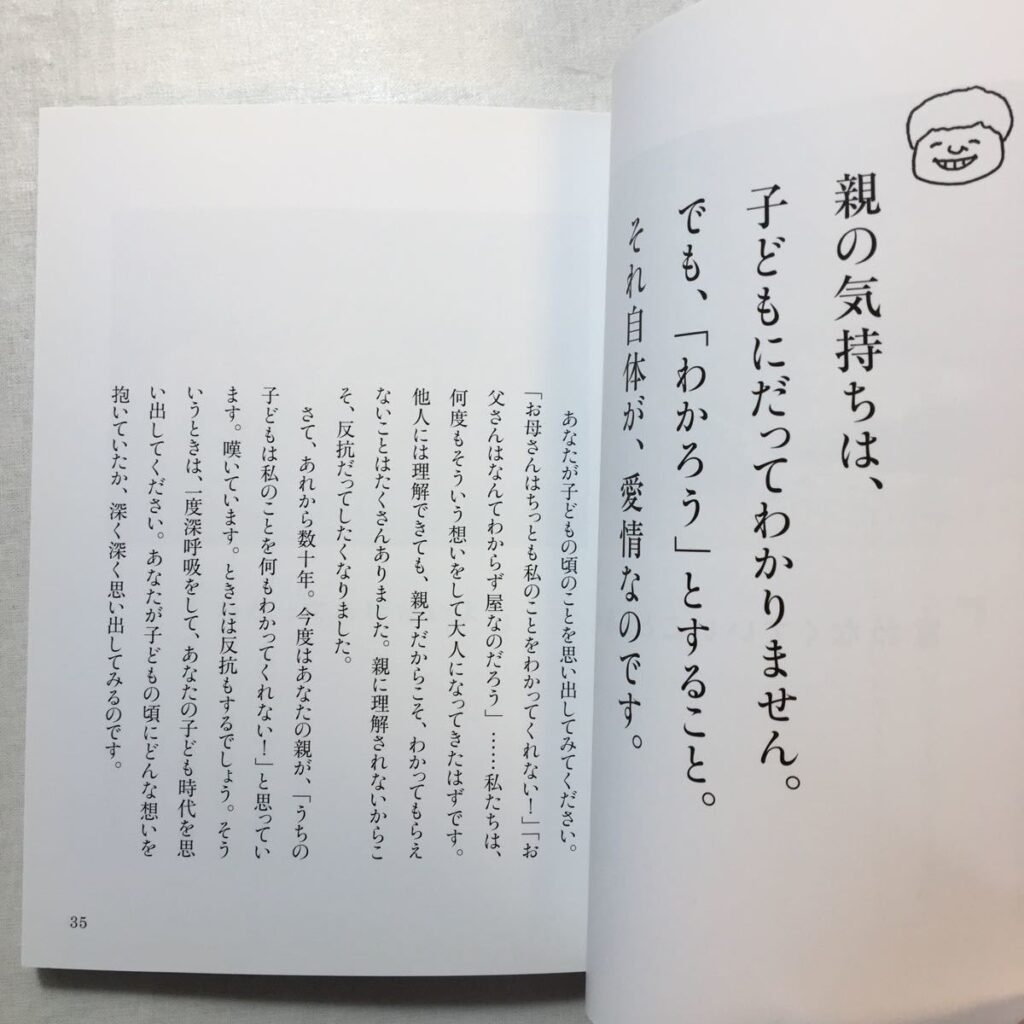 親の気持ちは、
子どもにだってわかりません。
でも、「わかろう」とすること。
それ自体が、愛情なのです。
あなたが子どもの頃のことを思い出してみてください。
「お母さんはちっとも私のことをわかってくれない！」「お
父さんはなんてわからず屋なのだろう」……私たちは、
何度もそういう想いをして大人になってきたはずです。
他人には理解できても、親子だからこそ、わかってもらえ
ないことはたくさんありました。親に理解されないからこ
そ、反抗だってしたくなりました。
さて、あれから数十年。今度はあなたの親が、「うちの
子どもは私のことを何もわかってくれない！」と思ってい
ます。嘆いています。ときには反抗もするでしょう。そう
いうときは、一度深呼吸をして、あなたの子ども時代を思
い出してください。あなたが子どもの頃にどんな想いを
抱いていたか、深く深く思い出してみるのです。
35